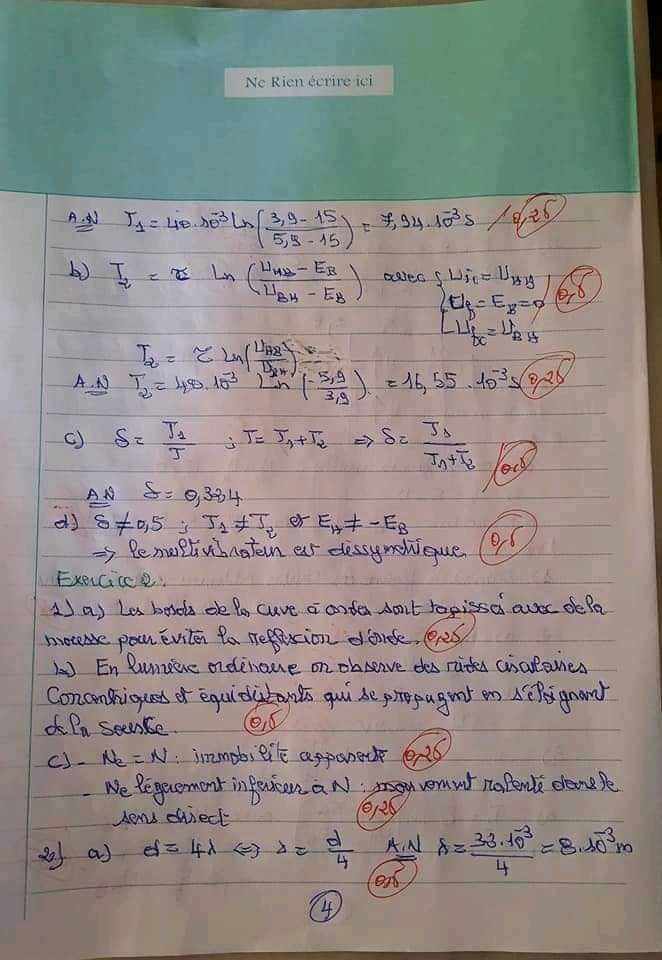 Ne Rien écrire ici
A.N T₁ = 40.10⁻³ Ln(3,9 - 15 / 5,9 - 15) = 7,94.10⁻³ s 0,25
b) T₂ = τ Ln(U_HB - E_B / U_BH - E_B) avec
E_B = 0
T₂ = τ Ln(U_HB / U_BH)
A.N T₂ = 40.10⁻³ Ln(-5,9 / 3,9) = 16,55.10⁻³ s 0,25
c) δ = T₁/T ; T = T₁+T₂ ⇒ δ = T₁/(T₁+T₂) 0,5
A.N δ = 0,324
d) δ ≠ 0,5 ; T₁ ≠ T₂ et E_H ≠ -E_B
⇒ le multivibrateur est dissymétrique. 0,5
Exercice 2:
1) a) Les bords de la cuve à ondes sont tapissés avec de la
mousse pour éviter la reflexion d'onde. 0,25
b) En lumière ordinaire on observe des rides circulaires
Concentriques et équidistants qui se propagent en s'éloignant
de la source. 0,5
c) - Ne = N : immobilité apparente 0,25
- Ne légèrement inférieur à N : mouvement ralenti dans le
sens direct 0,25
2) a) d = 4λ ⇔ λ = d/4 A.N λ = 32.10⁻³/4 = 8.10⁻³ m
0,5
4